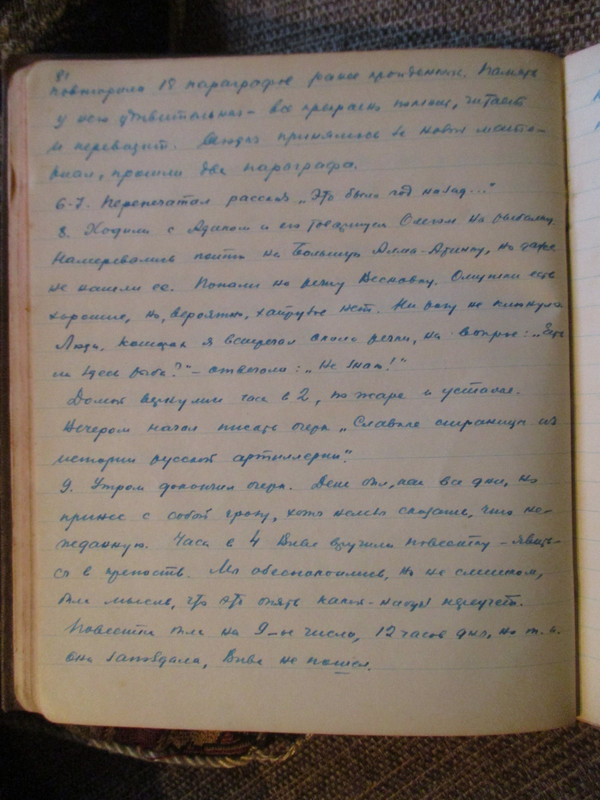 81
повторила 18 параграфов ранее пройденных. Память
у нее удивительная – все прекрасно помнит, читает
и переводит. Сегодня принялись за новый мате-
риал, прошли два параграфа.
6-7. Перепечатал рассказ „Это было год назад..."
8. Ходили с Адиком и его товарищем Олегом на рыбалку.
Намеревались пойти на Большую Алма-Атинку, но даже
не нашли ее. Попали на речку Весновку. Омутки есть
хорошие, но, вероятно, хайрузов нет. Ни разу не клюнуло.
Люди, которых я встречал около речки, на вопрос: „Есть
ли здесь рыба?" – отвечали: „Не знаю!"
Домой вернулись часа в 2, по жаре и усталые.
Вечером начал писать очерк „Славные страницы из
истории русской артиллерии".
9. Утром докончил очерк. День был, как все дни, но
принес с собой грозу, хотя нельзя сказать, что не-
жданную. Часа в 4 Вике вручили повестку – явить-
ся в крепость. Мы обеспокоились, но не слишком,
была мысль, что это опять какая-нибудь
Повестка была на 9-ое число, 12 часов дня, но т. к.
она запоздала, Вика не пошел.